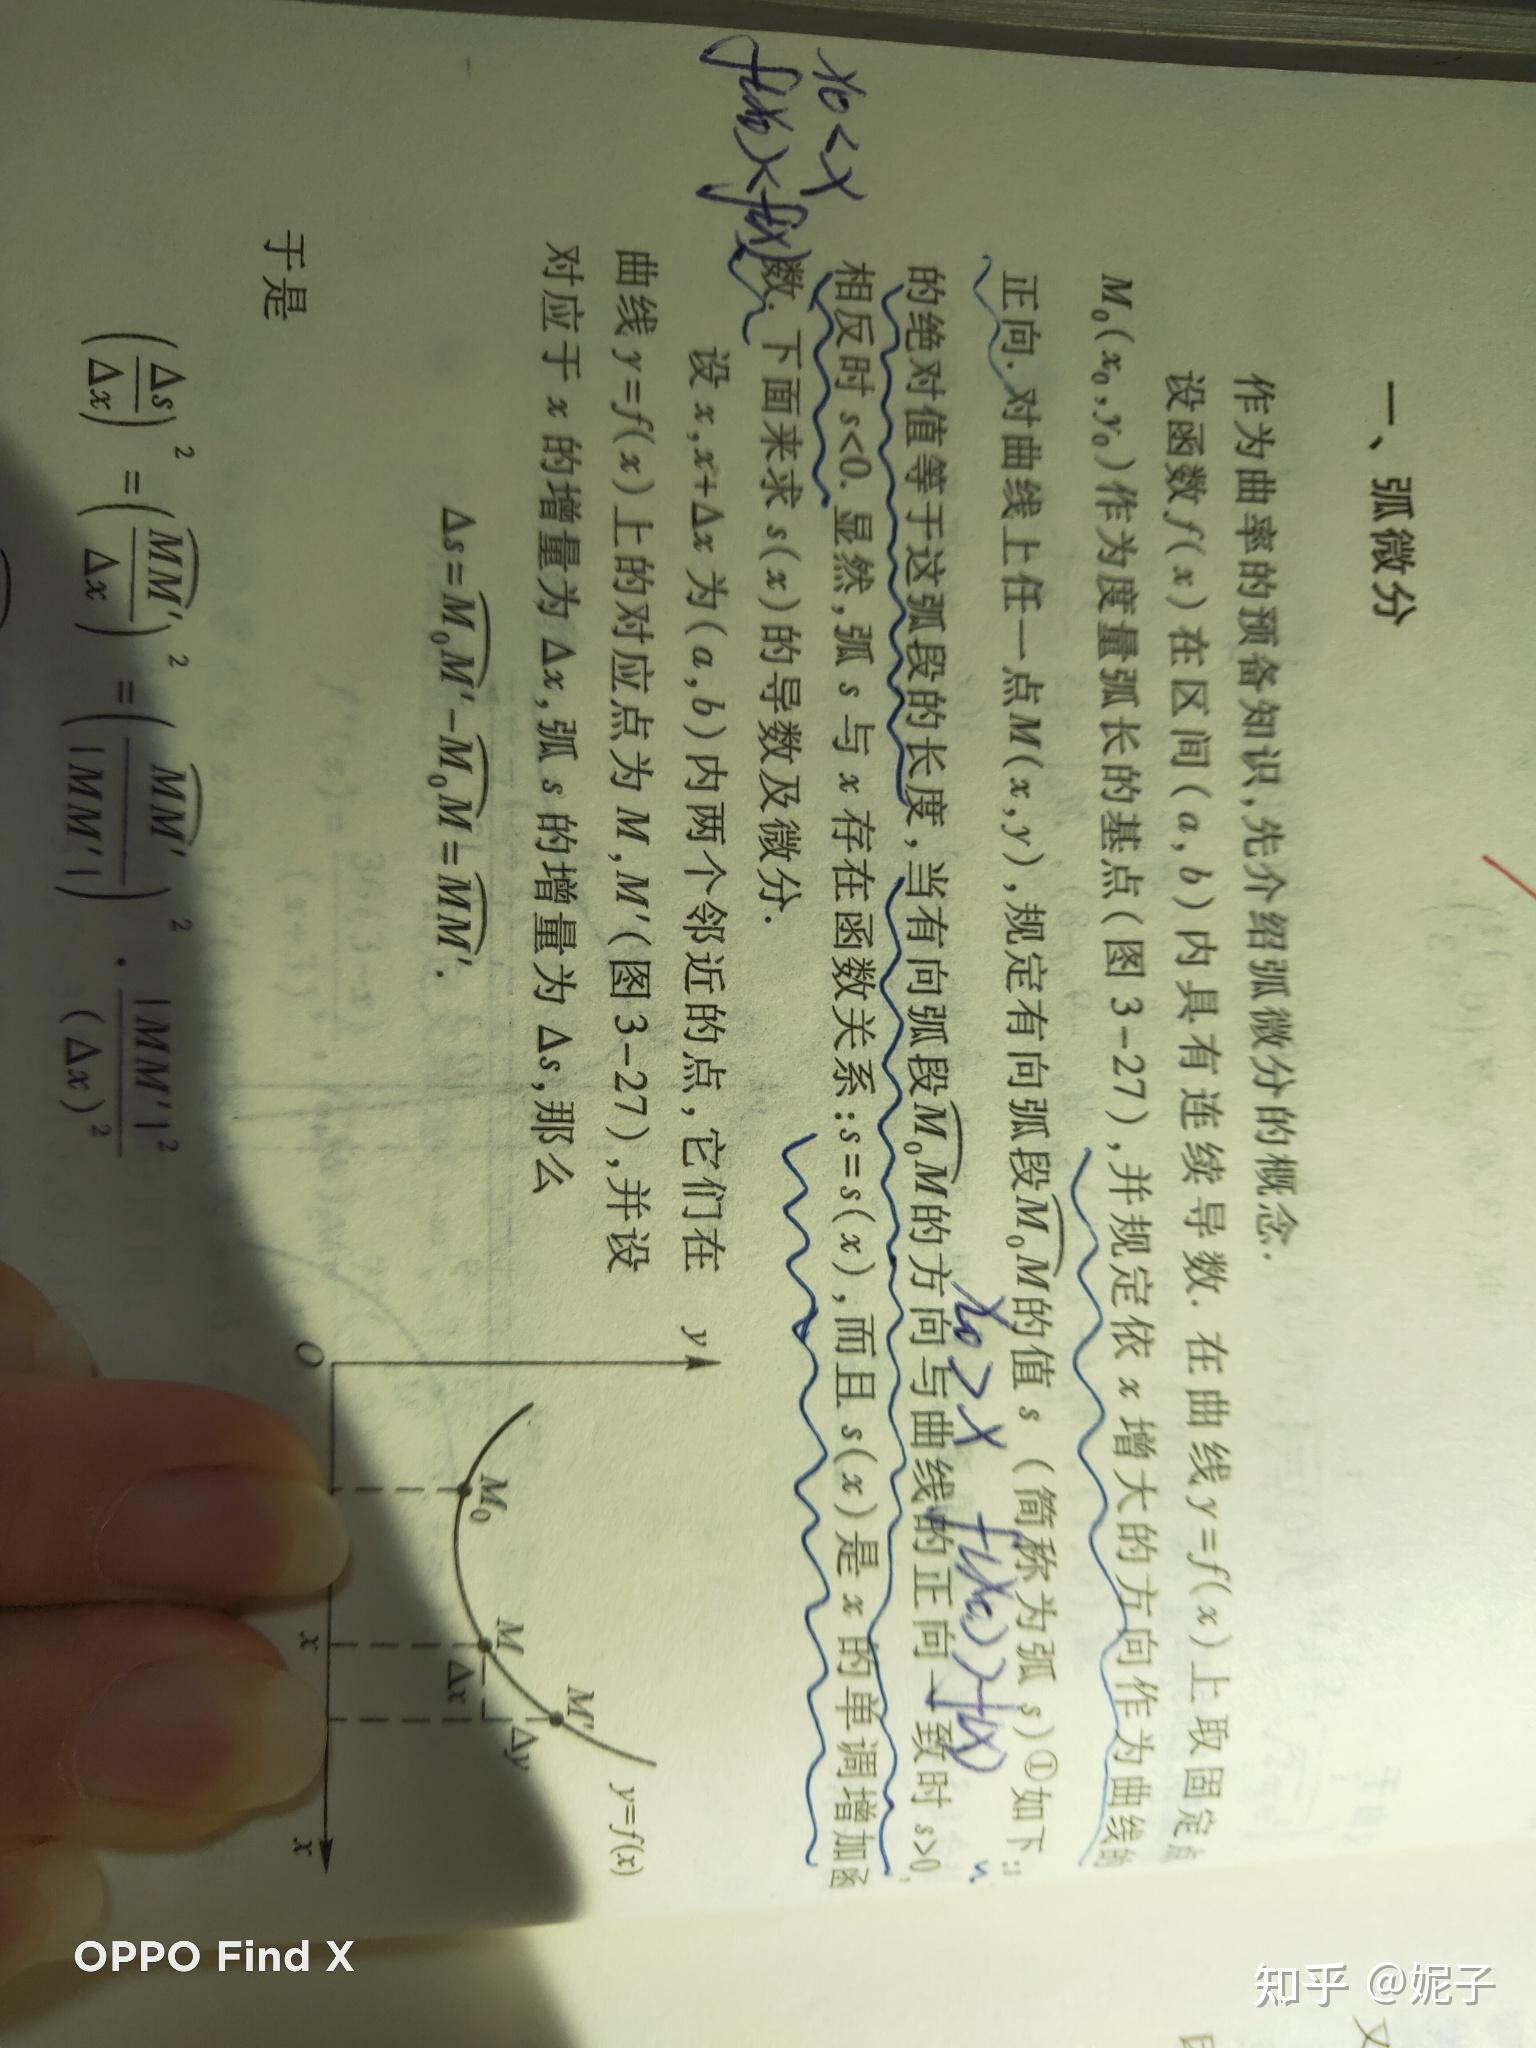 一、弧微分
作为曲率的预备知识,先介绍弧微分的概念.
设函数 f(x) 在区间(a,b)内具有连续导数. 在曲线 y=f(x) 上取固定点
M₀(x₀,y₀)作为度量弧长的基点(图 3-27),并规定依 x 增大的方向作为曲线的
正向. 对曲线上任一点 M(x,y),规定有向弧段M₀M的值 s (简称为弧 s)①如下:
x₀>x f(x₀)>f(x)
的绝对值等于这弧段的长度,当有向弧段M₀M的方向与曲线的正向一致时 s>0,
相反时 s<0. 显然,弧 s 与 x 存在函数关系:s=s(x),而且 s(x)是 x 的单调增加函
x₀<x
f(x₀)<f(x)
数. 下面来求 s(x)的导数及微分.
设 x,x+Δx 为(a,b)内两个邻近的点,它们在
曲线 y=f(x)上的对应点为 M,M′(图 3-27),并设
对应于 x 的增量为 Δx,弧 s 的增量为 Δs,那么
Δs=M₀M′-M₀M=MM′.
于是
(Δs/Δx)²=(MM′/Δx)²=(MM′/|MM′|)²·|MM′|²/(Δx)²
y
M₀
M
M′
Δx
Δy
y=f(x)
O
x
x
OPPO Find X
知乎 @妮子